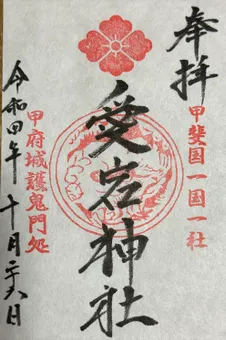 奉拝
甲斐国一国一社
愛宕神社
甲府城護鬼門処
令和四年 十月二十六日